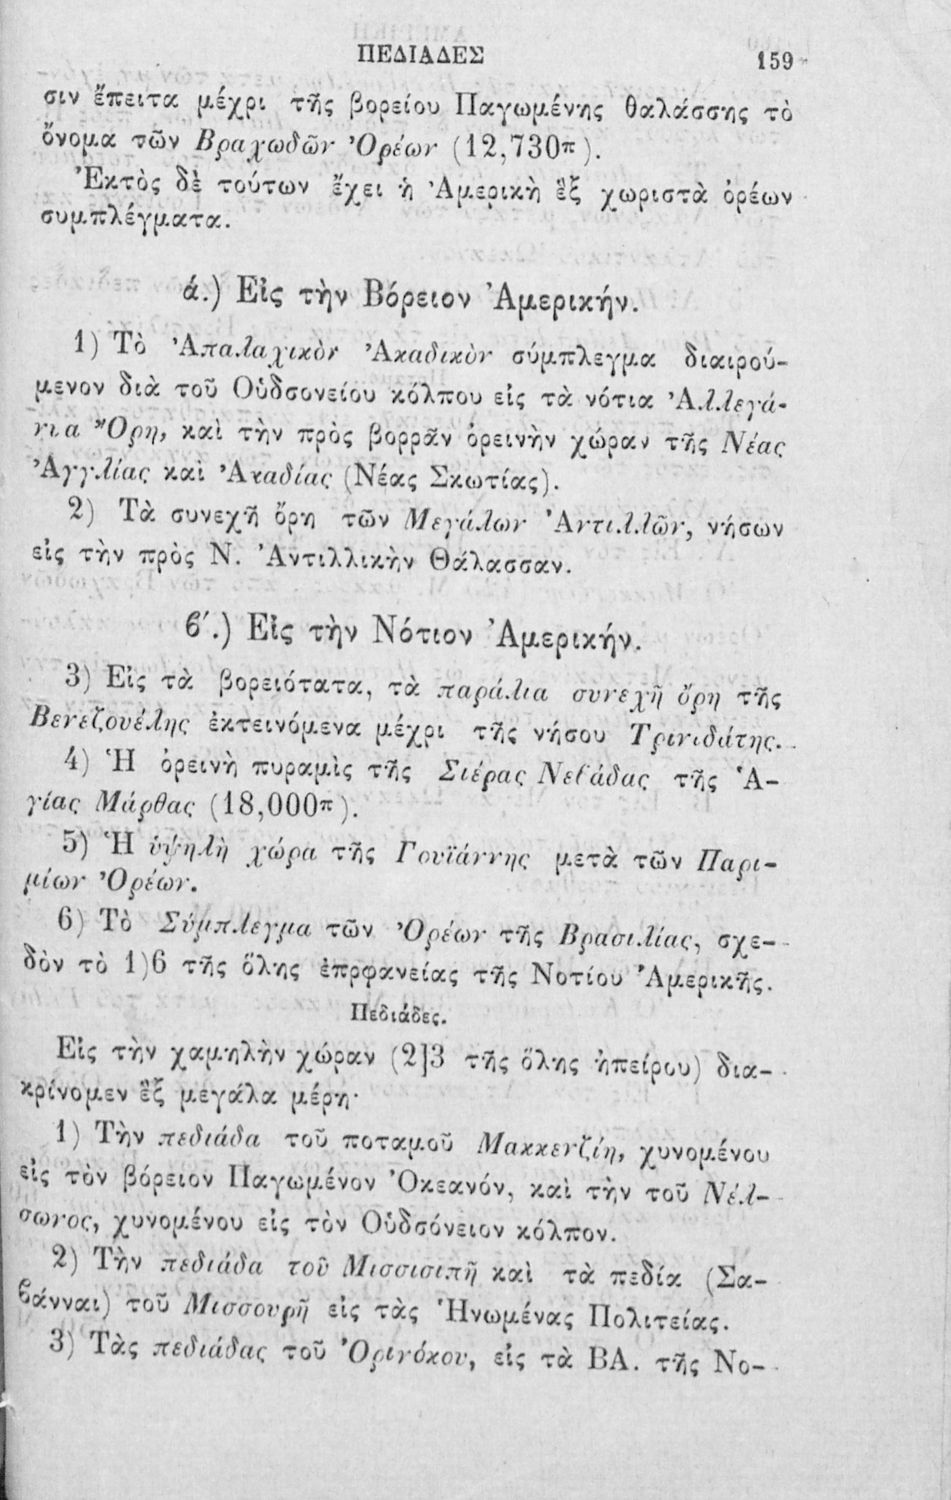 ΠΕΔΙΑΔΕΣ 159
σιν ἔπειτα μέχρι τῆς βορείου Παγωμένης θαλάσσης τὸ
ὄνομα τῶν Βραχωδῶν Ὀρέων (12,730π).
Ἐκτὸς δὲ τούτων ἔχει ἡ Ἀμερικὴ ἓξ χωριστὰ ὀρέων
συμπλέγματα.
ά.) Εἰς τὴν Βόρειον Ἀμερικήν.
1) Τὸ Ἀπαλαχικὸν Ἀκαδικὸν σύμπλεγμα διαιρού-
μενον διὰ τοῦ Οὑδσονείου κόλπου εἰς τὰ νότια Ἀλλεγά-
νια Ὄρη, καὶ τὴν πρὸς βορρᾶν ὀρεινὴν χώραν τῆς Νέας
Ἀγγλίας καὶ Ἀκαδίας (Νέας Σκωτίας).
2) Τὰ συνεχῆ ὄρη τῶν Μεγάλων Ἀντιλλῶν, νήσων
εἰς τὴν πρὸς Ν. Ἀντιλλικὴν Θάλασσαν.
ϐ΄.) Εἰς τὴν Νότιον Ἀμερικήν.
3) Εἰς τὰ βορειότατα, τὰ παράλια συνεχῆ ὄρη τῆς
Βενεζουέλης ἐκτεινόμενα μέχρι τῆς νήσου Τρινιδάτης.
4) Ἡ ὀρεινὴ πυραμὶς τῆς Σιέρας Νεϐάδας τῆς Ἁ-
γίας Μάρθας (18,000π).
5) Ἡ ὑψηλὴ χώρα τῆς Γουϊάννης μετὰ τῶν Παρι-
μίων Ὀρέων.
6) Τὸ Σύμπλεγμα τῶν Ὀρέων τῆς Βρασιλίας, σχε-
δὸν τὸ 1)6 τῆς ὅλης ἐπρφανείας τῆς Νοτίου Ἀμερικῆς.
Πεδιάδες.
Εἰς τὴν χαμηλὴν χώραν (2]3 τῆς ὅλης ἠπείρου) δια-
κρίνομεν ἓξ μεγάλα μέρη·
1) Τὴν πεδιάδα τοῦ ποταμοῦ Μακκενζίη, χυνομένου
εἰς τὸν βόρειον Παγωμένον Ὀκεανόν, καὶ τὴν τοῦ Νέλ-
σωνος, χυνομένου εἰς τὸν Οὑδσόνειον κόλπον.
2) Τὴν πεδιάδα τοῦ Μισσισιπῆ καὶ τὰ πεδία (Σα-
ϐάνναι) τοῦ Μισσουρῆ εἰς τὰς Ἡνωμένας Πολιτείας.
3) Τὰς πεδιάδας τοῦ Ὀρινόκου, εἰς τὰ ΒΑ. τῆς Νο-